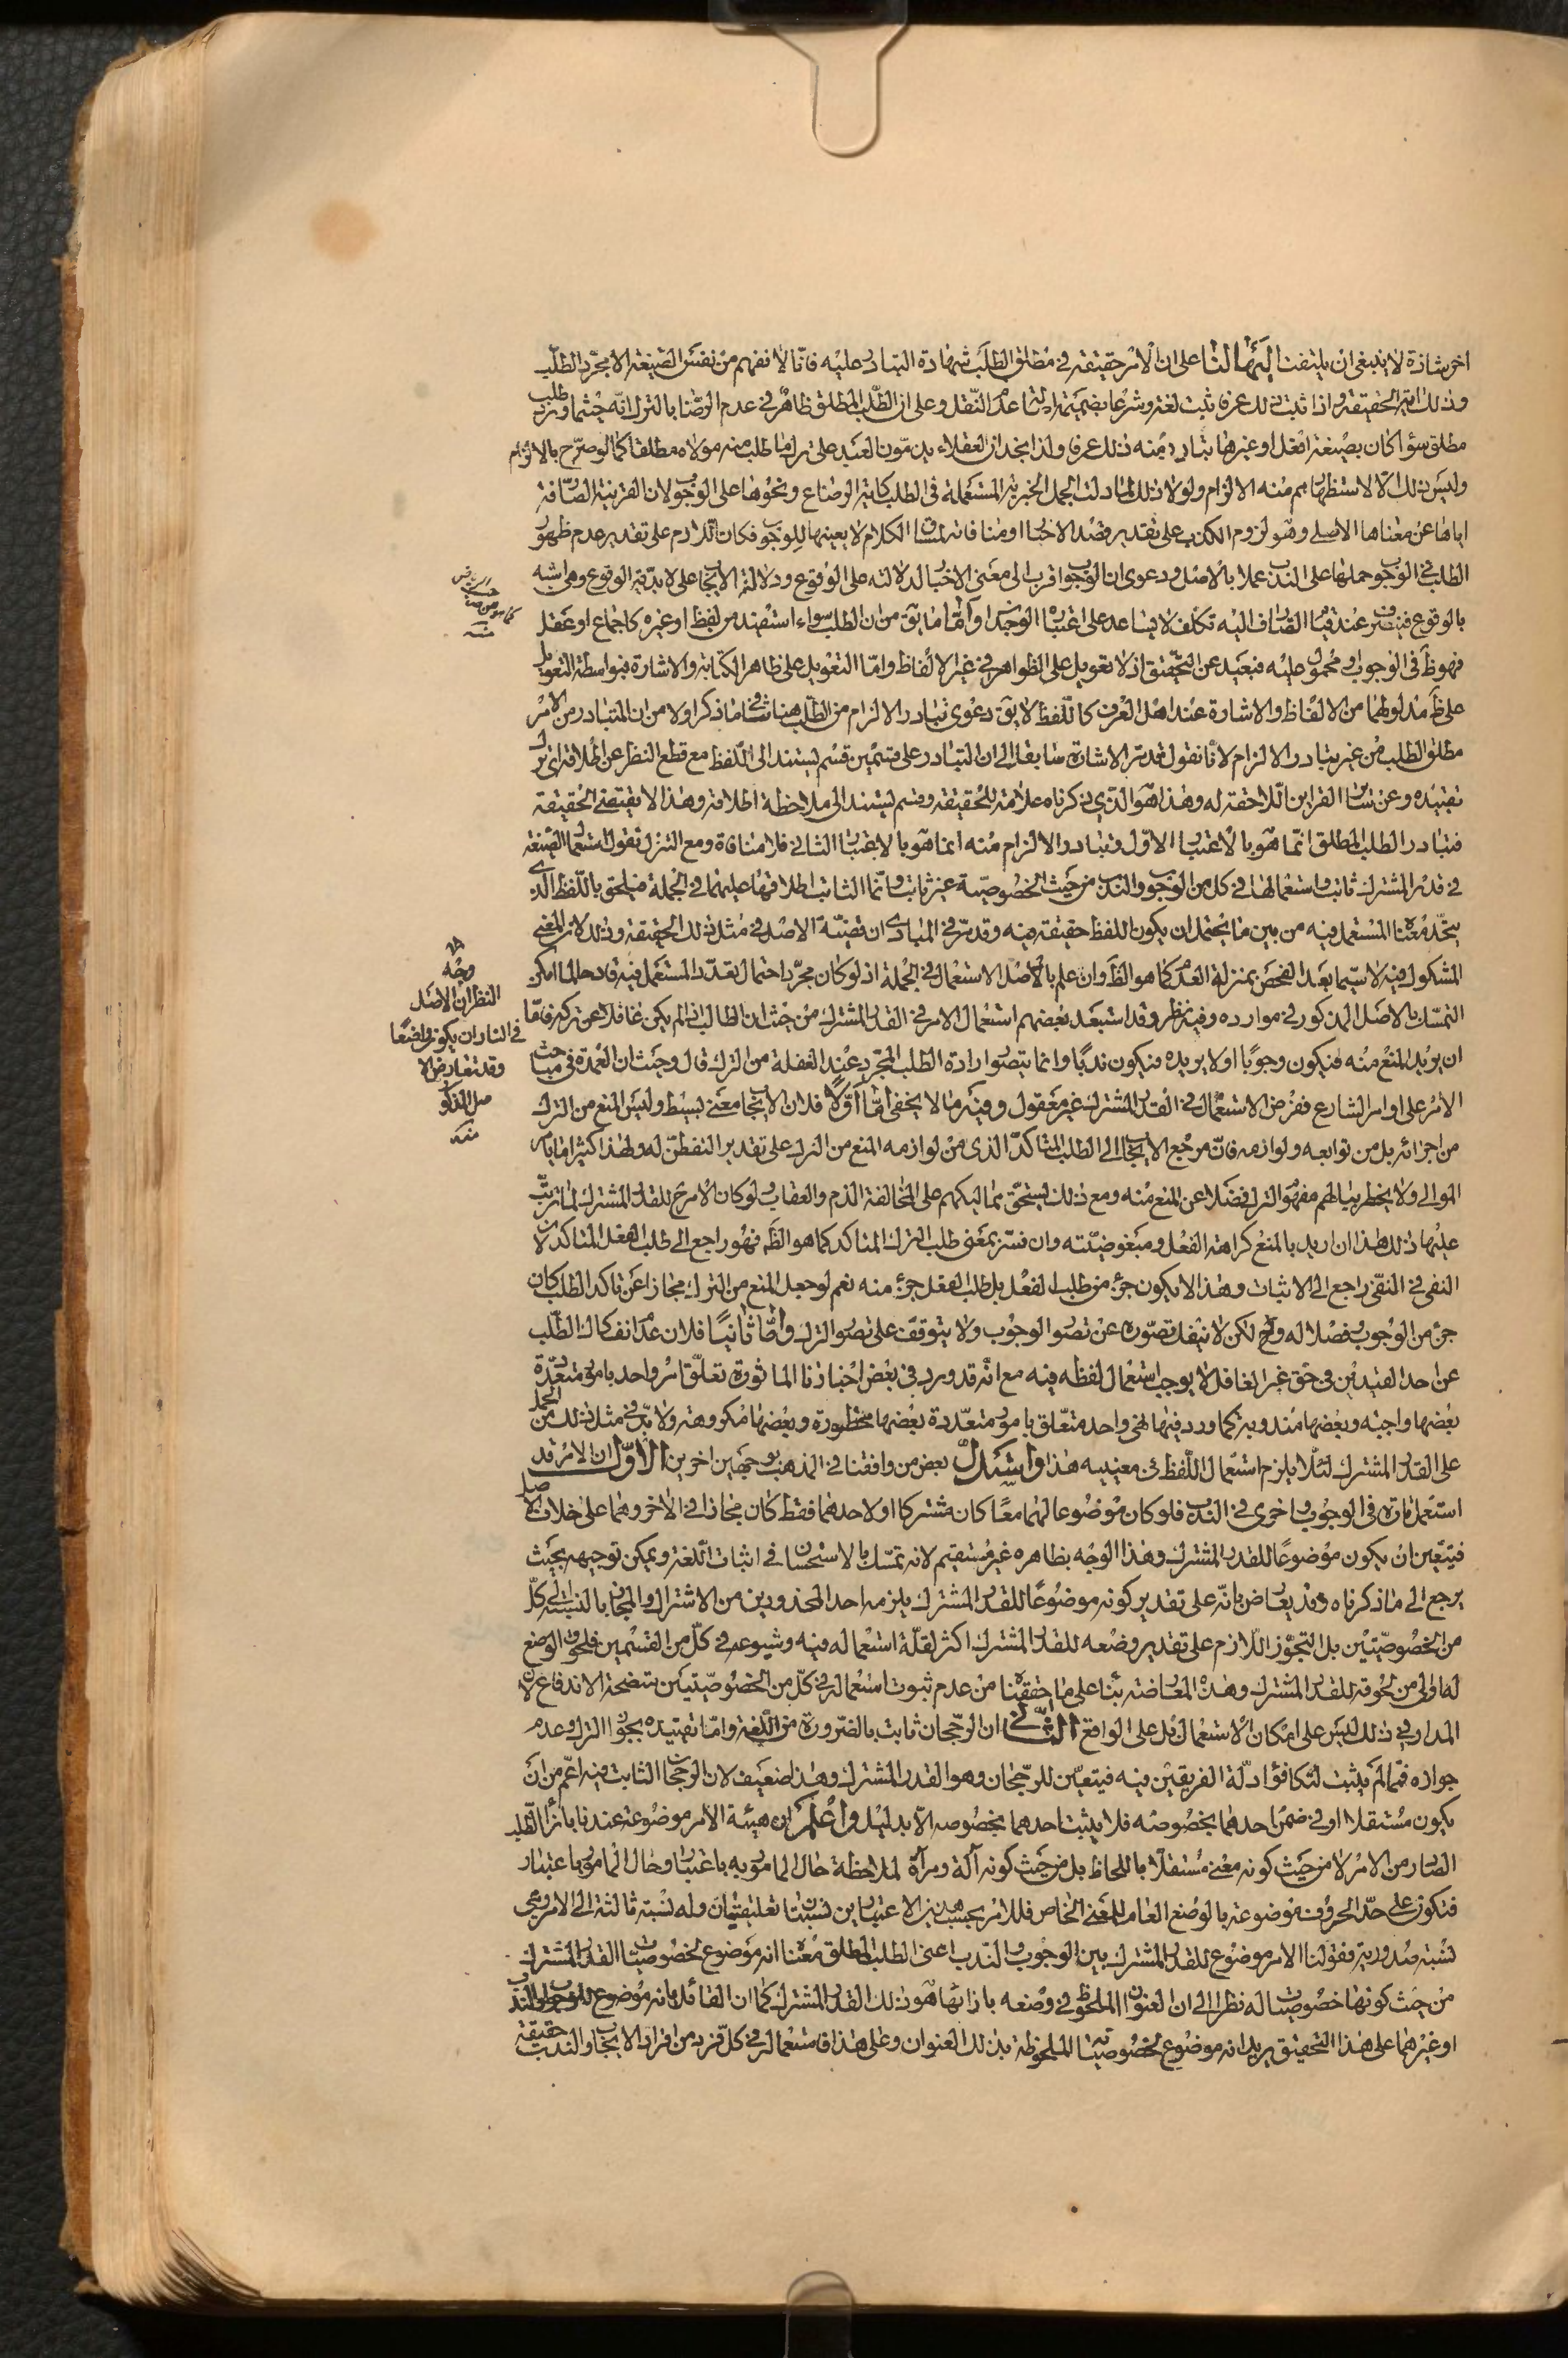 اخر شاذة لا ينبغى ان يلتفت اليها لنا على ان الامر حقيقة فى مطلق الطلب شهادة التبادر عليه فانا لا نفهم من نفس الصيغة الا مجرد الطلب
وذلك اية الحقيقة واذا ثبت ذلك عرفا ثبت لغة وشرعا بضميمة اصالة عدم النقل وعلى ان الطلب المطلق ظاهر فى عدم الرضا بالترك انه حيثما ورد طلب
مطلق سواء كان بصيغة افعل او غيرها تبادر منه ذلك عرفا ولذا نجد ان العقلاء يذمون العبد على ترك ما طلب منه مولاه مطلقا كما لو صرح بالالزام
وليس ذلك الا لاستظهارهم منه الالزام ولولا ذلك لما دلت الجمل الخبرية المستعملة فى الطلب كاية الرضاع ونحوها على الوجوب لان القرينة الصارفة
اياها عن معناها الاصلى وهو لزوم الكذب على تقدير قصد الاخبار او منافاته لمساق الكلام لا يعينها للوجوب فكان اللازم على تقدير عدم ظهور
الطلب فى الوجوب حملها على الندب عملا بالاصل ودعوى ان الوجوب اقرب الى معنى الاخبار لدلالته على الوقوع ودلالة الايجاب على لابدية الوقوع وهى اشبه
بالوقوع فيتعين عند قيام الصارف اليه تكلف لا يساعد على اعتباره الوجدان واما ما يق من ان الطلب سواء استفيد من لفظ او غيره كاجماع او عقل
فهو ظ فى الوجوب ومحمول عليه فبعيد عن التحقيق اذ لا تعويل على الظواهر فى غير الالفاظ واما التعويل على ظاهر الكتابة والاشارة فبواسطة التعويل
على ظ مدلولهما من الالفاظ والاشارة عند اهل العرف كاللفظ لا يق دعوى تبادر الالزام من الطلب هنا ينافى ما ذكر اولا من ان المتبادر من الامر
مطلق الطلب من غير تبادر الالزام لانا نقول قد مر الاشارة سابقا الى ان التبادر على قسمين قسم يستند الى اللفظ مع قطع النظر عن اطلاقه اى ترك
تقييده وعن سائر القراين اللاحقة له وهذا هو الذى ذكرناه علامة للحقيقة وقسم يستند الى ملاحظة اطلاقه وهذا لا يقتضى الحقيقة
فتبادر الطلب المطلق انما هو بالاعتبار الاول وتبادر الالزام منه انما هو بالاعتبار الثانى فلا منافاة ومع التنزل نقول استعمال الصيغة
فى قدر المشترك ثابت واستعمالها فى كل من الوجوب والندب من حيث الخصوصية غير ثابت وانما الثابت اطلاقها عليهما فى الجملة فيلحق باللفظ الذى
يتحد معناه المستعمل فيه من بين ما يحتمل ان يكون اللفظ حقيقة فيه وقد مر فى المبادى ان قضية الاصل فى مثل ذلك الحقيقة وذلك لان المعنى
المشكوك فيه لا سيما بعد الفحص بمنزلة العدم كما هو الظ وان علم بالاصل الاستعمال فى الجملة اذ لو كان مجرد احتمال تعدد المستعمل فيه قادحا لما امكن
التمسك بالاصل المذكور فى موارده وفيه نظر وقد استبعد بعضهم استعمال الامر فى القدر المشترك من حيث ان الطالب اذا لم يكن غافلا عن تركه فاما
ان يريد المنع منه فيكون وجوبا او لا يريده فيكون ندبا وانما يتصور ارادة الطلب المجرد عند الغفلة من الترك قال وحيث ان العمدة فى مباحث
الامر على اوامر الشارع ففرض الاستعمال فى القدر المشترك غير معقول وفيه ما لا يخفى اما اولا فلان الايجاب معنى بسيط وليس المنع من الترك
من اجزائه بل من توابعه ولوازمه فان مرجع الايجاب الى الطلب المتاكد الذى من لوازمه المنع من الترك على تقدير التفطن له ولهذا كثيرا ما يامر
الموالى ولا يخطر ببالهم مفهوم الترك فضلا عن المنع منه ومع ذلك يستحق مماليكهم على المخالفة الذم والعقاب ولو كان الامر ح للقدر المشترك لما ترتب
عليها ذلك هذا ان اريد بالمنع كراهة الفعل ومبغوضيته وان فسر بمعنى طلب الترك المتاكد كما هو الظ فهو راجع الى طلب الفعل المتاكد لان
النفى فى النفى راجع الى الاثبات وهذا لا يكون جزء من طلب الفعل بل طلب الفعل جزء منه نعم لو جعل المنع من الترك مجازا عن تاكد الطلب كان
جزء من الوجوب فصلا له وح لكن لا ينفك تصوره عن تصور الوجوب ولا يتوقف على تصور الترك واما ثانيا فلان عدم انفكاك الطلب
عن احد القيدين فى حق غير الغافل لا يوجب استعمال لفظه فيه مع انه قد ورد فى بعض اخبارنا الماثورة تعلق امر واحد بامور متعددة
بعضها واجبة وبعضها مندوبة كما ورد فيها نهى واحد متعلق بامور متعددة بعضها محظورة وبعضها مكروهة ولا بد فى مثل ذلك من الحمل
على القدر المشترك لئلا يلزم استعمال اللفظ فى معنييه هذا واستدل بعض من وافقنا فى المذهب بوجهين اخرين الاول ان الامر قد
استعمل تارة فى الوجوب واخرى فى الندب فلو كان موضوعا لهما معا كان مشتركا او لاحدهما فقط كان مجازا فى الاخر وهما على خلاف الاصل
فيتعين ان يكون موضوعا للقدر المشترك وهذا الوجه بظاهره غير مستقيم لانه تمسك بالاستحسان فى اثبات اللغة ويمكن توجيهه بحيث
يرجع الى ما ذكرناه وقد يعارض بانه على تقدير كونه موضوعا للقدر المشترك يلزمه احد المحذورين من الاشتراك والمجاز بالنسبة الى كل
من الخصوصيتين بل التجوز اللازم على تقدير وضعه للقدر المشترك اكثر لقلة استعماله فيه وشيوعه فى كل من القسمين فلحوق الوضع
لها اولى من لحوقه للقدر المشترك وهذه المعارضة بناء على ما حققناه من عدم ثبوت استعماله فى كل من الخصوصيتين متضحة الاندفاع لان
المدار فى ذلك ليس على امكان الاستعمال بل على الواقع الثانى ان الرجحان ثابت بالضرورة من اللغة واما تقييده بجواز الترك وعدم
جوازه فمما لم يثبت لتكافؤ ادلة الفريقين فيه فيتعين للرجحان وهو القدر المشترك وهذا ضعيف لان الرجحان الثابت فيه اعم من ان
يكون مستقلا او فى ضمن احدهما بخصوصه فلا يثبت احدهما بخصوصه الا بدليل واعلم ان هيئة الامر موضوعة عندنا بازاء الطلب
الصادر من الامر لا من حيث كونه معنى مستقلا باللحاظ بل من حيث كونه آلة ومرآة لملاحظة حال المامور به باعتبار وحال المامور باعتبار
فتكون على حد الحروف موضوعة بالوضع العام للمعنى الخاص فللامر بحسب هذين الاعتبارين نسبتان تعليقيتان وله نسبة ثالثة الى الامر وهى
نسبة صدورية فقولنا الامر موضوع للقدر المشترك بين الوجوب والندب اعنى الطلب المطلق معناه انه موضوع لخصوصيات القدر المشترك
من حيث كونها خصوصيات له نظرا الى ان العنوان الملحوظ فى وضعه بازائها هو ذلك القدر المشترك كما ان القائل بانه موضوع للوجوب او الندب
او غيرهما على هذا التحقيق يريد انه موضوع لخصوصياته الملحوظة بذلك العنوان وعلى هذا فاستعماله فى كل فرد من افراد الايجاب والندب حقيقة
وجه
النظر ان الاصل
فى النادر ان يكون واضعا
وقد تعارض الا
صل المذكور
منه